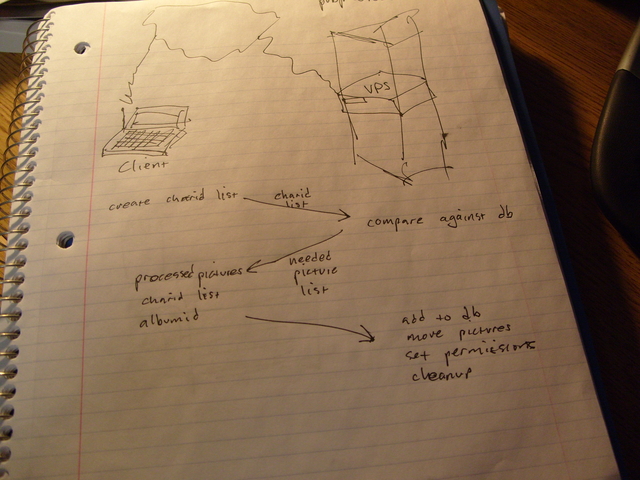 VPS
Client
create charid list
charid
list
compare against db
needed
picture
list
processed pictures
charid list
albumid
add to db
move pictures
set permissions
cleanup